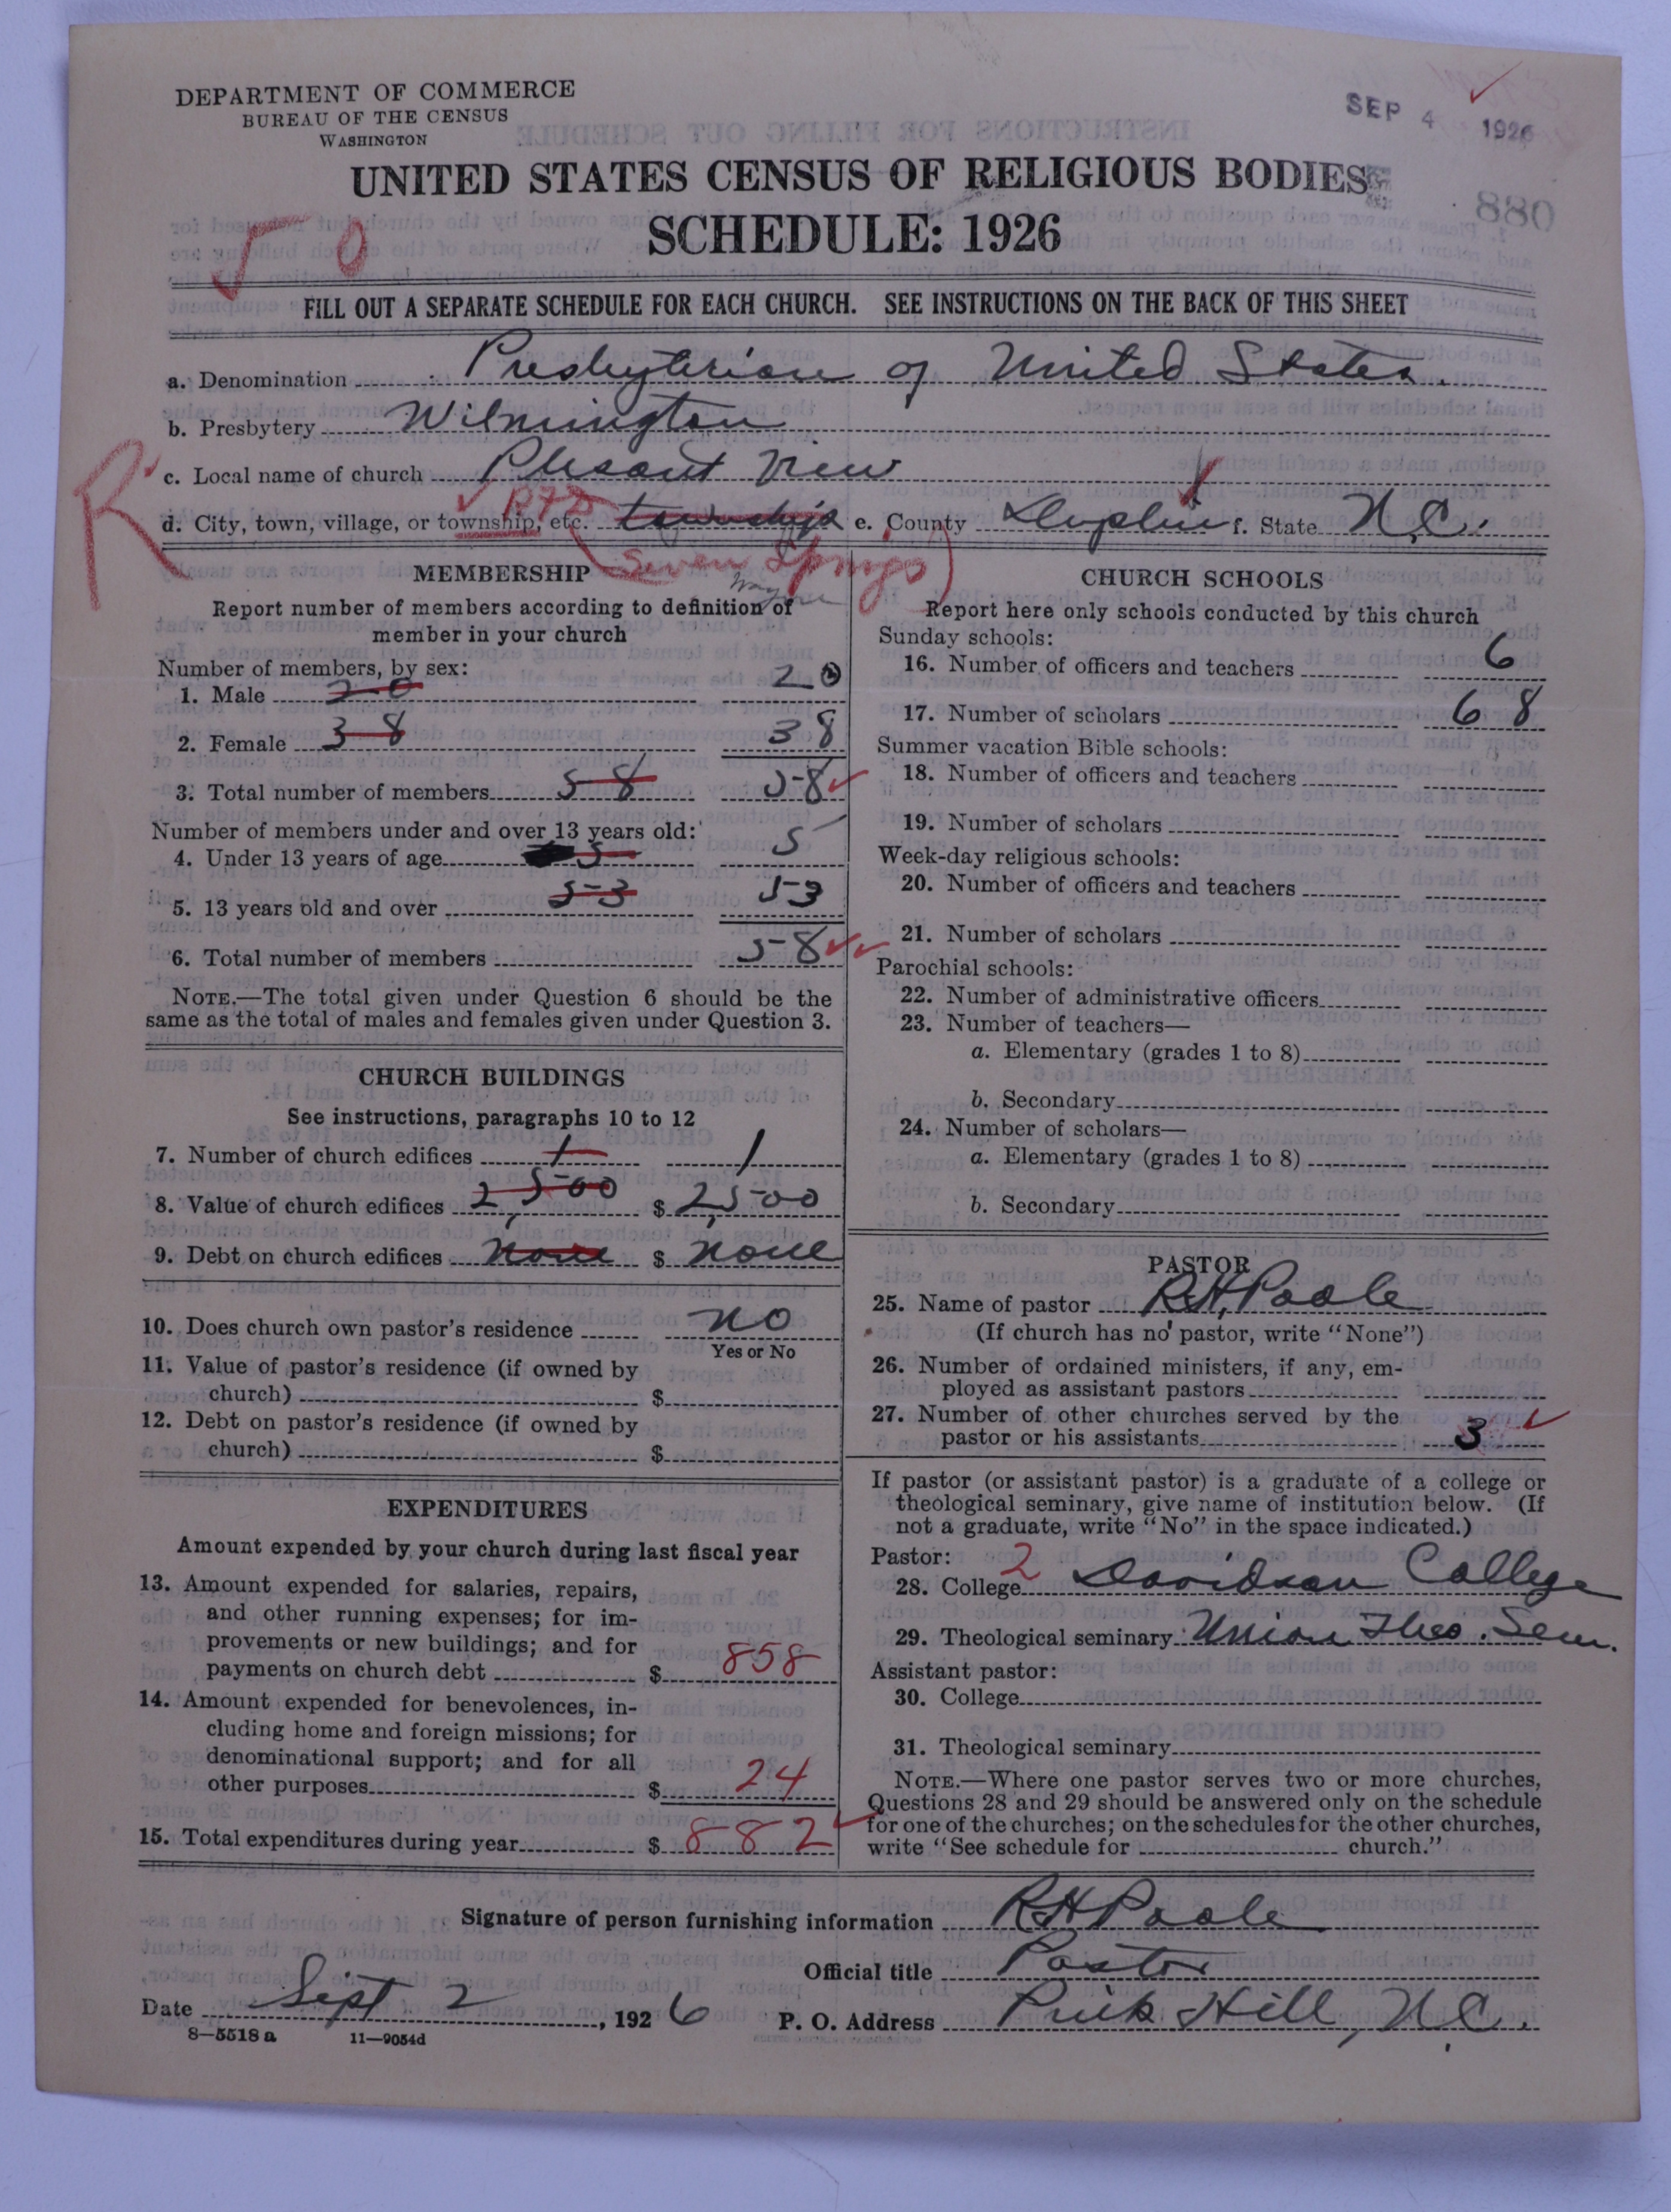 DEPARTMENT OF COMMERCE
BUREAU OF THE CENSUS
WASHINGTON
SEP 4 1926
UNITED STATES CENSUS OF RELIGIOUS BODIES
SCHEDULE: 1926
880
FILL OUT A SEPARATE SCHEDULE FOR EACH CHURCH. SEE INSTRUCTIONS ON THE BACK OF THIS SHEET
a. Denomination Presbyterian of United States.
b. Presbytery Wilmington
R
c. Local name of church Plesant View
d. City, town, village, or township, etc. township e. County Duplin f. State N.C.
(Seven Springs)
Wayne
MEMBERSHIP
Report number of members according to definition of
member in your church
Number of members, by sex:
1. Male 20 20
2. Female 38 38
3. Total number of members 58 58
Number of members under and over 13 years old:
4. Under 13 years of age 5 5
5. 13 years old and over 53 53
6. Total number of members 58
NOTE.—The total given under Question 6 should be the
same as the total of males and females given under Question 3.
CHURCH BUILDINGS
See instructions, paragraphs 10 to 12
7. Number of church edifices 1 1
8. Value of church edifices 2,500 $ 2,500
9. Debt on church edifices none $ none
10. Does church own pastor's residence no
Yes or No
11. Value of pastor's residence (if owned by
church) $
12. Debt on pastor's residence (if owned by
church) $
EXPENDITURES
Amount expended by your church during last fiscal year
13. Amount expended for salaries, repairs,
and other running expenses; for im-
provements or new buildings; and for
payments on church debt $ 858
14. Amount expended for benevolences, in-
cluding home and foreign missions; for
denominational support; and for all
other purposes $ 24
15. Total expenditures during year $ 882
CHURCH SCHOOLS
Report here only schools conducted by this church
Sunday schools:
16. Number of officers and teachers 6
17. Number of scholars 68
Summer vacation Bible schools:
18. Number of officers and teachers
19. Number of scholars
Week-day religious schools:
20. Number of officers and teachers
21. Number of scholars
Parochial schools:
22. Number of administrative officers
23. Number of teachers—
a. Elementary (grades 1 to 8)
b. Secondary
24. Number of scholars—
a. Elementary (grades 1 to 8)
b. Secondary
PASTOR
25. Name of pastor R.H. Poole
(If church has no pastor, write "None")
26. Number of ordained ministers, if any, em-
ployed as assistant pastors
27. Number of other churches served by the
pastor or his assistants 3
If pastor (or assistant pastor) is a graduate of a college or
theological seminary, give name of institution below. (If
not a graduate, write "No" in the space indicated.)
Pastor: 2
28. College Davidson College
29. Theological seminary Union Theo. Sem.
Assistant pastor:
30. College
31. Theological seminary
NOTE.—Where one pastor serves two or more churches,
Questions 28 and 29 should be answered only on the schedule
for one of the churches; on the schedules for the other churches,
write "See schedule for church."
Signature of person furnishing information R H Poole
Official title Pastor
Date Sept 2, 1926 P. O. Address Pink Hill, N.C.
8—5518 a 11—9054d